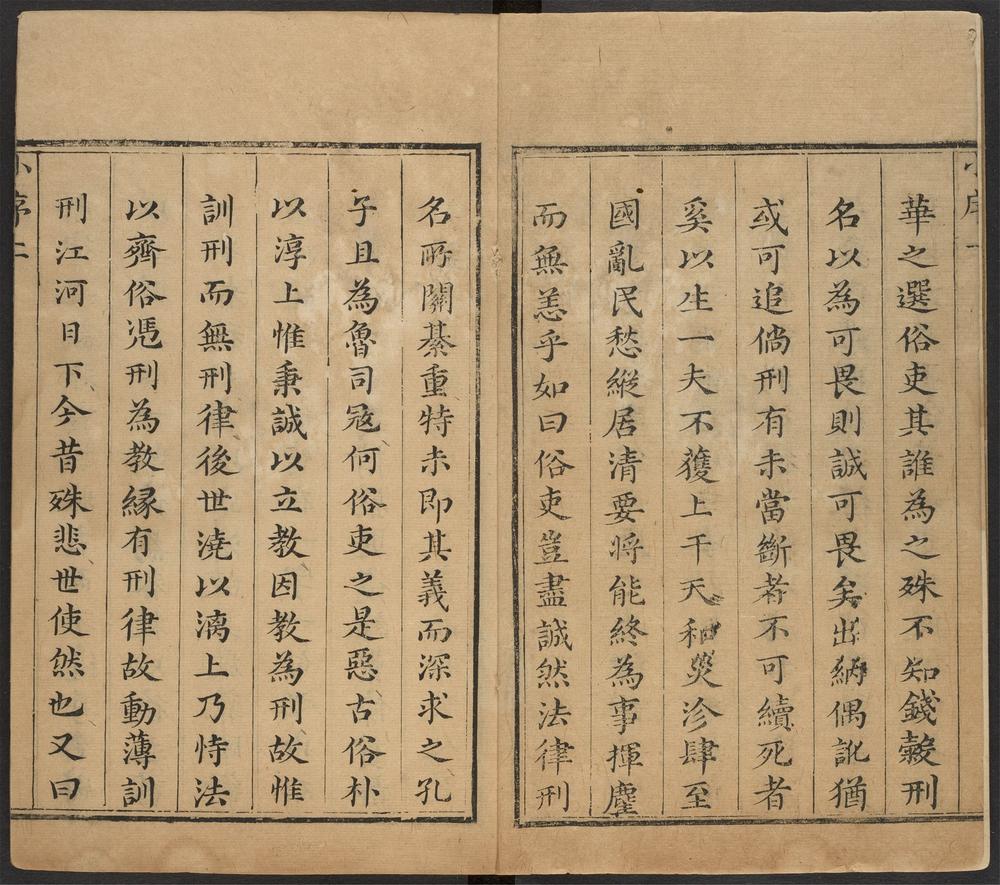 小序一
華之選俗吏其誰為之殊不知錢穀刑
名以為可畏則誠可畏矣出納偶訛猶
或可追倘刑有未當斷者不可續死者
奚以生一夫不獲上干天和災沴肆至
國亂民愁縱居清要将能終為事揮麈
而無恙乎如曰俗吏豈盡誠然法律刑
名所關綦重特未即其義而深求之孔
子且為魯司寇何俗吏之是惡古俗朴
以淳上惟秉誠以立教因教為刑故惟
訓刑而無刑律後世澆以漓上乃恃法
以齊俗憑刑為教緣有刑律故動薄訓
刑江河日下今昔殊悲世使然也又曰
小序二